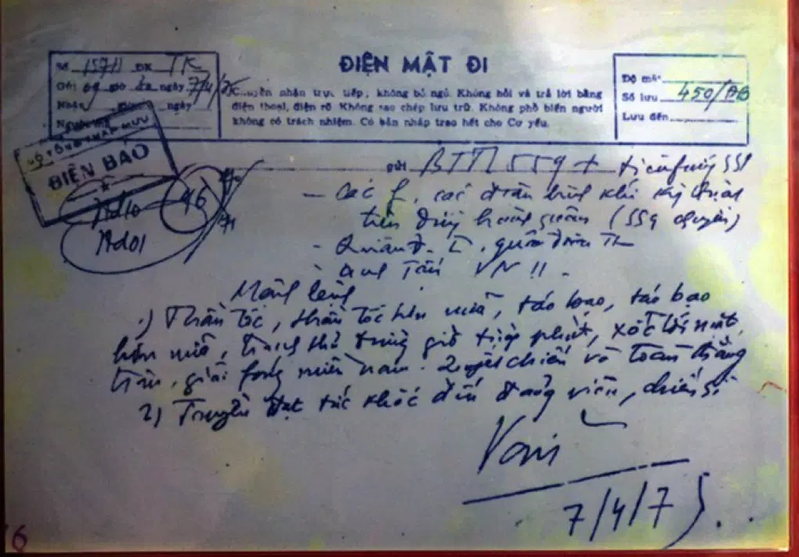 ĐIỆN MẬT ĐI
Số 157H ĐK TK
Gửi 09 giờ ngày 7/4/75
Nhận giờ ngày
Người
Chuyển nhận trực tiếp, không bỏ ngủ. Không hỏi và trả lời bằng
điện thoại, điện rõ. Không sao chép lưu trữ. Không phổ biến người
không có trách nhiệm. Có bản nháp trao hết cho Cơ yếu.
Độ mật
Số lưu 450/ĐB
Lưu đến
BỘ TỔNG THAM MƯU
ĐIỆN BÁO
46
Ad01
gửi BTTL 559 +
- Các f, các đơn binh khí kỹ thuật
trên đường hành quân (559 chuyển)
- Quân đ. I, quân đoàn
- Anh Tấn VN 11.
Mệnh lệnh
1) Thần tốc, thần tốc hơn nữa, táo bạo, táo bạo
hơn nữa, tranh thủ từng giờ từng phút, xốc tới mặt
trận, giải fóng miền nam. Quyết chiến và toàn thắng
2) Truyền đạt tức khắc đến đảng viên, chiến sĩ
Văn
7/4/75.
6